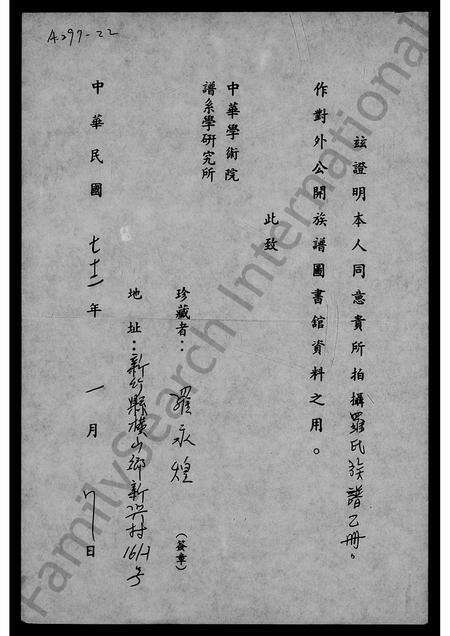 A297-22
茲證明本人同意貴所拍攝羅氏族譜乙冊。
作對外公開族譜圖書館資料之用。
此致
中華學術院
譜系學研究所
珍藏者：羅永煌（簽章）
地址：新竹縣橫山鄉新興村16/1號
中華民國七十二年一月 日
FamilySearch International